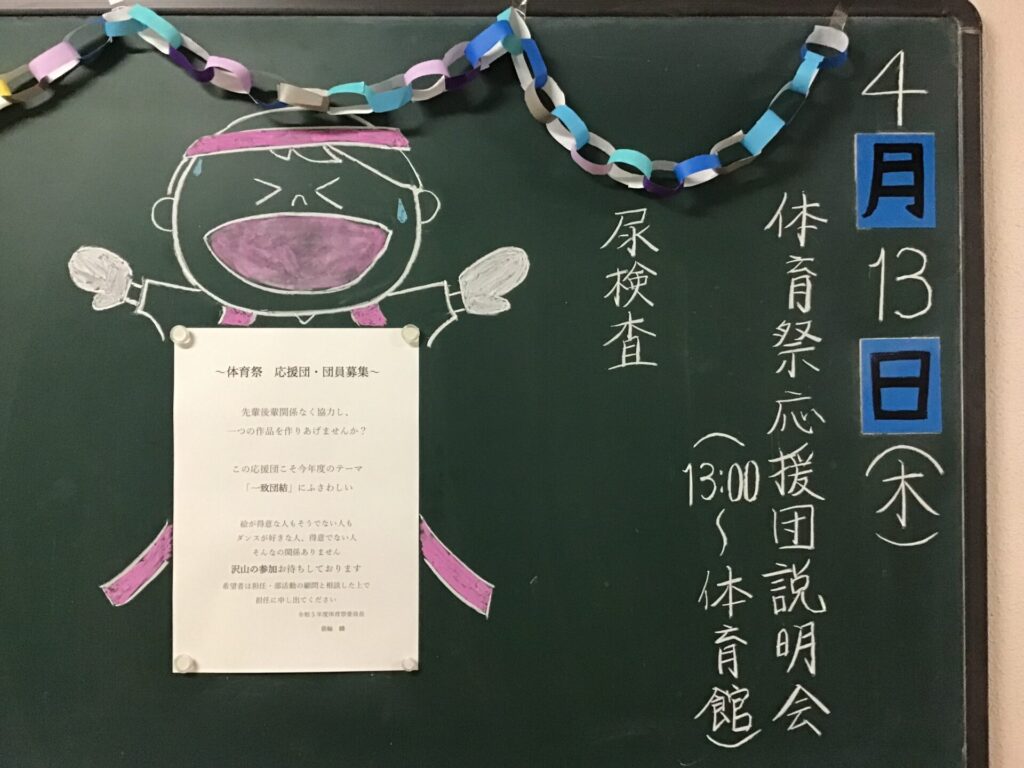 4月13日(木)
体育祭応援団説明会
(13:00〜体育館)
尿検査
〜体育祭 応援団・団員募集〜
先輩後輩関係なく協力し、
一つの作品を作りあげませんか？
この応援団こそ今年度のテーマ
「一致団結」にふさわしい
絵が得意な人もそうでない人も
ダンスが好きな人、得意でない人
そんなの関係ありません
沢山の参加お待ちしております
希望者は担任・部活動の顧問と相談した上で
担任に申し出てください
令和5年度体育祭委員長